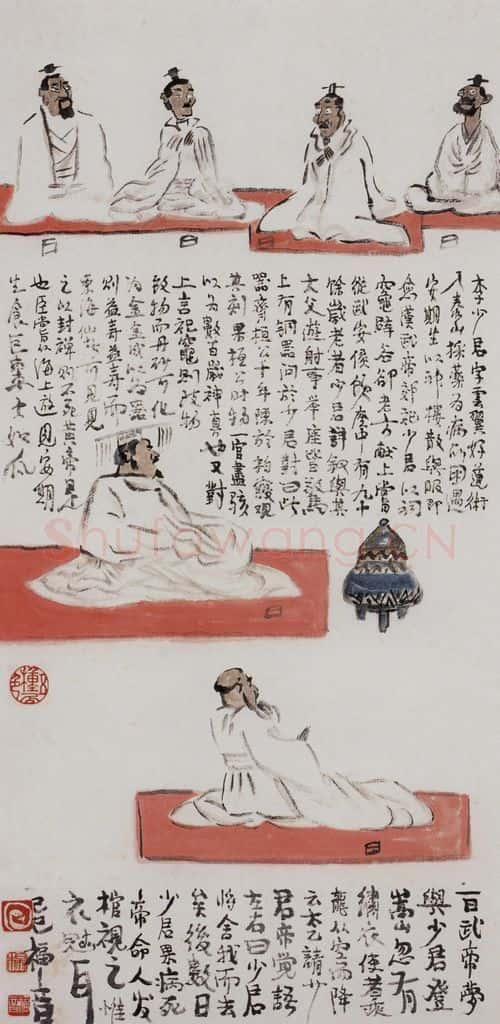 李少君字雲翼好道術
入泰山採藥為病所困遇
安期生以神樓散與服即
愈漢武帝郊祀少君以祠
竈辟谷卻老方獻上嘗
從武安侯飲座中有九十
餘歲老者少君詳叙與其
大父遊射事舉座皆驚
上有銅器問於少君對曰此
器齊桓公十年陳於柏寢視
其刻果桓公時物一宮盡駭
以為數百歲神真也又對
上言祀竈則致物
致物而丹砂可化
為金金成以為器
則益壽益壽而
東海仙者可見見
之以封禪則不死黃帝是
也臣嘗以海上遊見安期
生食巨棗大如瓜
Shufawang.CN
一日武帝夢
與少君登
嵩山忽有
繡衣使者乘
龍從空而降
云太乙請少
君帝覺語
左右曰少君
將舍我而去
矣後數日
少君果病死
帝命人發
棺視之惟
衣冠耳